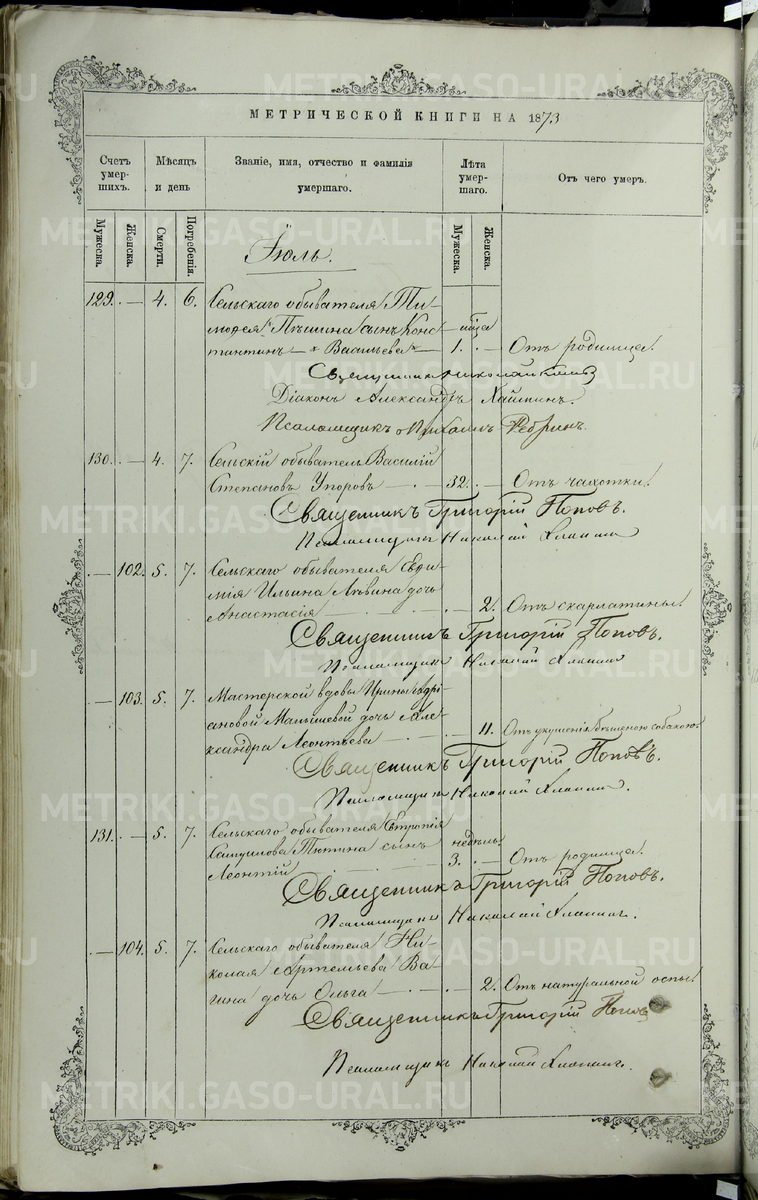 МЕТРИЧЕСКОЙ КНИГИ НА 1873
Счетъ умер- шихъ.
Мѣсяцъ и день
Званіе, имя, отчество и фамилія умершаго.
Лѣта умер- шаго.
Отъ чего умеръ.
Мужеска.
Женска.
Смерти.
Погребенія.
Мужеска.
Женска.
Іюль.
129. — 4. 6. Сельскаго обывателя Ти-
мофея Пѣшина сынъ Конс-
тантинъ — Васильева — 1. — Отъ родимца.
Священникъ Николай
Діаконъ Александръ Хаймин.
Псаломщикъ Михаилъ Ребринъ.
130. — 4. 7. Сельскій обыватель Василій
Степановъ Упоровъ — 32. — Отъ чахотки.
Священникъ Григорій Поповъ.
Псаломщикъ Николай
— 102. 5. 7. Сельскаго обывателя Евфи-
мія Ильина Львина дочь
Анастасія — — 2. Отъ скарлатины.
Священникъ Григорій Поповъ.
Псаломщикъ Николай
— 103. 5. 7. Мастерской вдовы Ирины Андрі-
ановой Малышевой дочь Але-
ксандра Леонтьева — — 11. Отъ укушенія бѣшеною собакою.
Священникъ Григорій Поповъ.
Псаломщикъ Николай
131. — 5. 7. Сельскаго обывателя Евтропія
Самуилова Тютина сынъ недѣль
Леонтій — 3. — Отъ родимца.
Священникъ Григорій Поповъ.
Псаломщикъ Николай
— 104. 5. 7. Сельскаго обывателя Ни-
колая Артемьева Ва-
гина дочь Ольга — — 2. Отъ натуральной оспы.
Священникъ Григорій Поповъ
Псаломщикъ Николай
METRIKI.GASO-URAL.RU